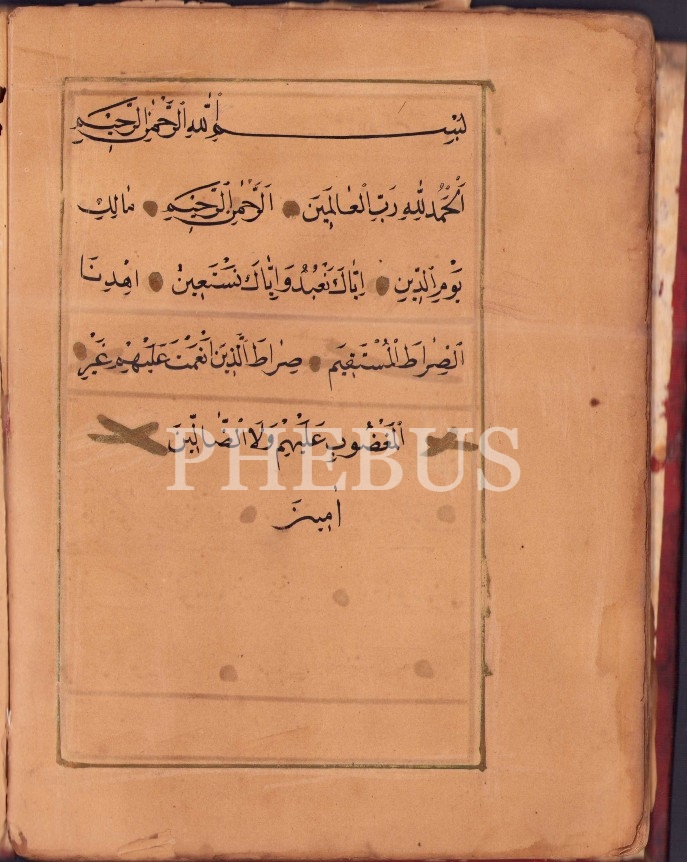 بِسْمِ اللّٰهِ الرَّحْمٰنِ الرَّحِيْمِ
اَلْحَمْدُ لِلّٰهِ رَبِّ الْعَالَمِيْنَ الرَّحْمٰنِ الرَّحِيْمِ مَالِكِ
يَوْمِ الدِّيْنِ اِيَّاكَ نَعْبُدُ وَاِيَّاكَ نَسْتَعِيْنُ اِهْدِنَا
الصِّرَاطَ الْمُسْتَقِيْمَ صِرَاطَ الَّذِيْنَ اَنْعَمْتَ عَلَيْهِمْ غَيْرِ
الْمَغْضُوْبِ عَلَيْهِمْ وَلَا الضَّالِّيْنَ
PHEBUS
اٰمِيْنَ